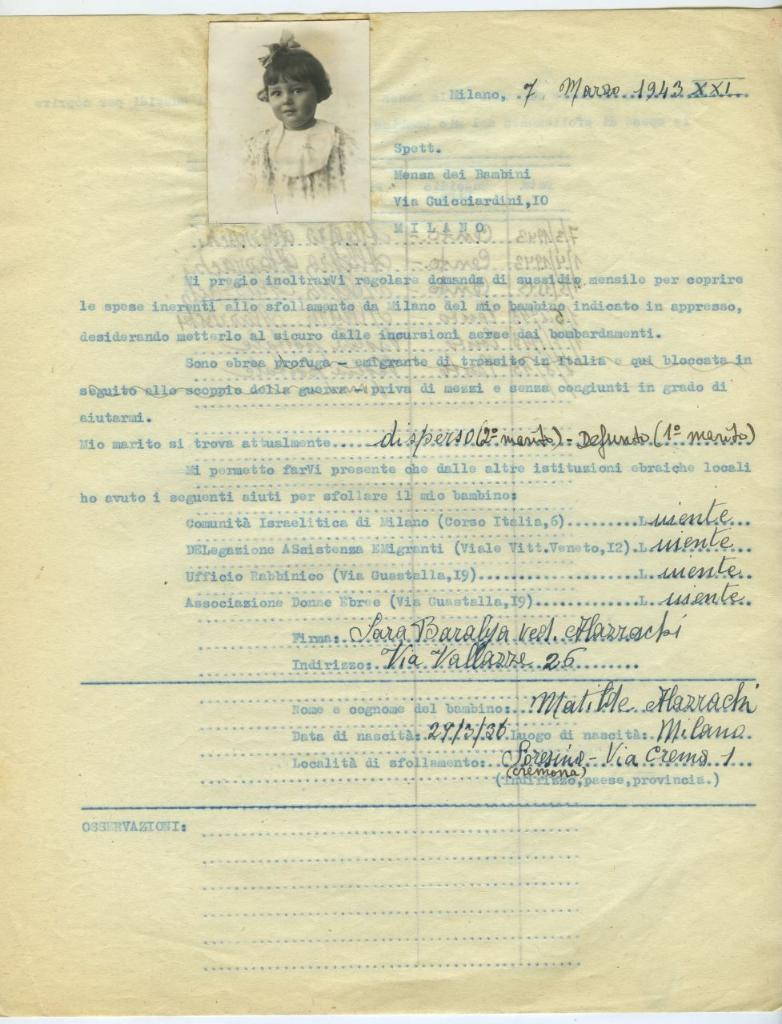 Milano, 7 Marzo 1943 XXI
Spett.
Mensa dei Bambini
Via Guicciardini,10
MILANO
Mi pregio inoltrarVi regolare domanda di sussidio mensile per coprire
le spese inerenti allo sfollamento da Milano del mio bambino indicato in appresso,
desiderando metterlo al sicuro dalle incursioni aeree dai bombardamenti.
Sono ebrea profuga - emigrante di transito in Italia e qui bloccata in
seguito allo scoppio della guerra - priva di mezzi e senza congiunti in grado di
aiutarmi.
Mio marito si trova attualmente..... disperso (2º marito) - Defunto (1º marito)
Mi permetto farVi presente che dalle altre istituzioni ebraiche locali
ho avuto i seguenti aiuti per sfollare il mio bambino:
Comunità Israelitica di Milano (Corso Italia,6)..........L. niente...
DELegazione ASsistenza EMigranti (Viale Vitt.Veneto,12).L. niente...
Ufficio Rabbinico (Via Guastalla,19)....................L. niente..
Associazione Donne Ebree (Via Guastalla,19).............L. niente...
Firma: Sara ved. Alazrachi
Indirizzo: Via Vallazze 26
Nome e cognome del bambino: Matilde Alazrachi
Data di nascità: 29/3/36 Luogo di nascità: Milano
Località di sfollamento: Soresina - Via Crema 1
(Cremona)
(indirizzo,paese,provincia.)
OSSERVAZIONI: